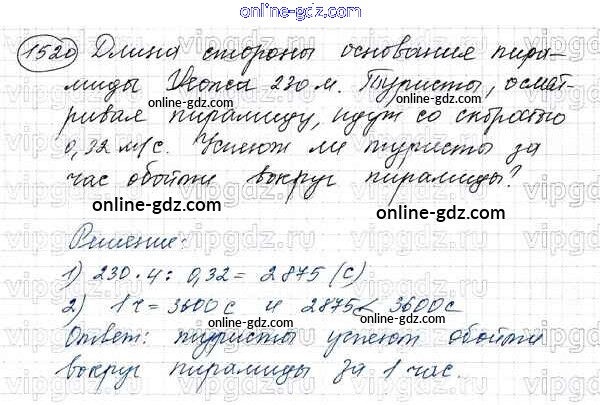 online-gdz.com
1520 Длина стороны основания пира-
миды Хеопса 230 м. Туристы, осмат-
online-gdz.com
ривая пирамиду, идут со скоростью
0,32 м/с. Успеют ли туристы за
час обойти вокруг пирамиды?
online-gdz.com
online-gdz.com
Решение:
online-gdz.com
1) 230·4:0,32=2875 (с)
2) 1 ч=3600 с и 2875<3600с
online-gdz.com
Ответ: туристы успеют обойти
вокруг пирамиды за 1 час.
online-gdz.com